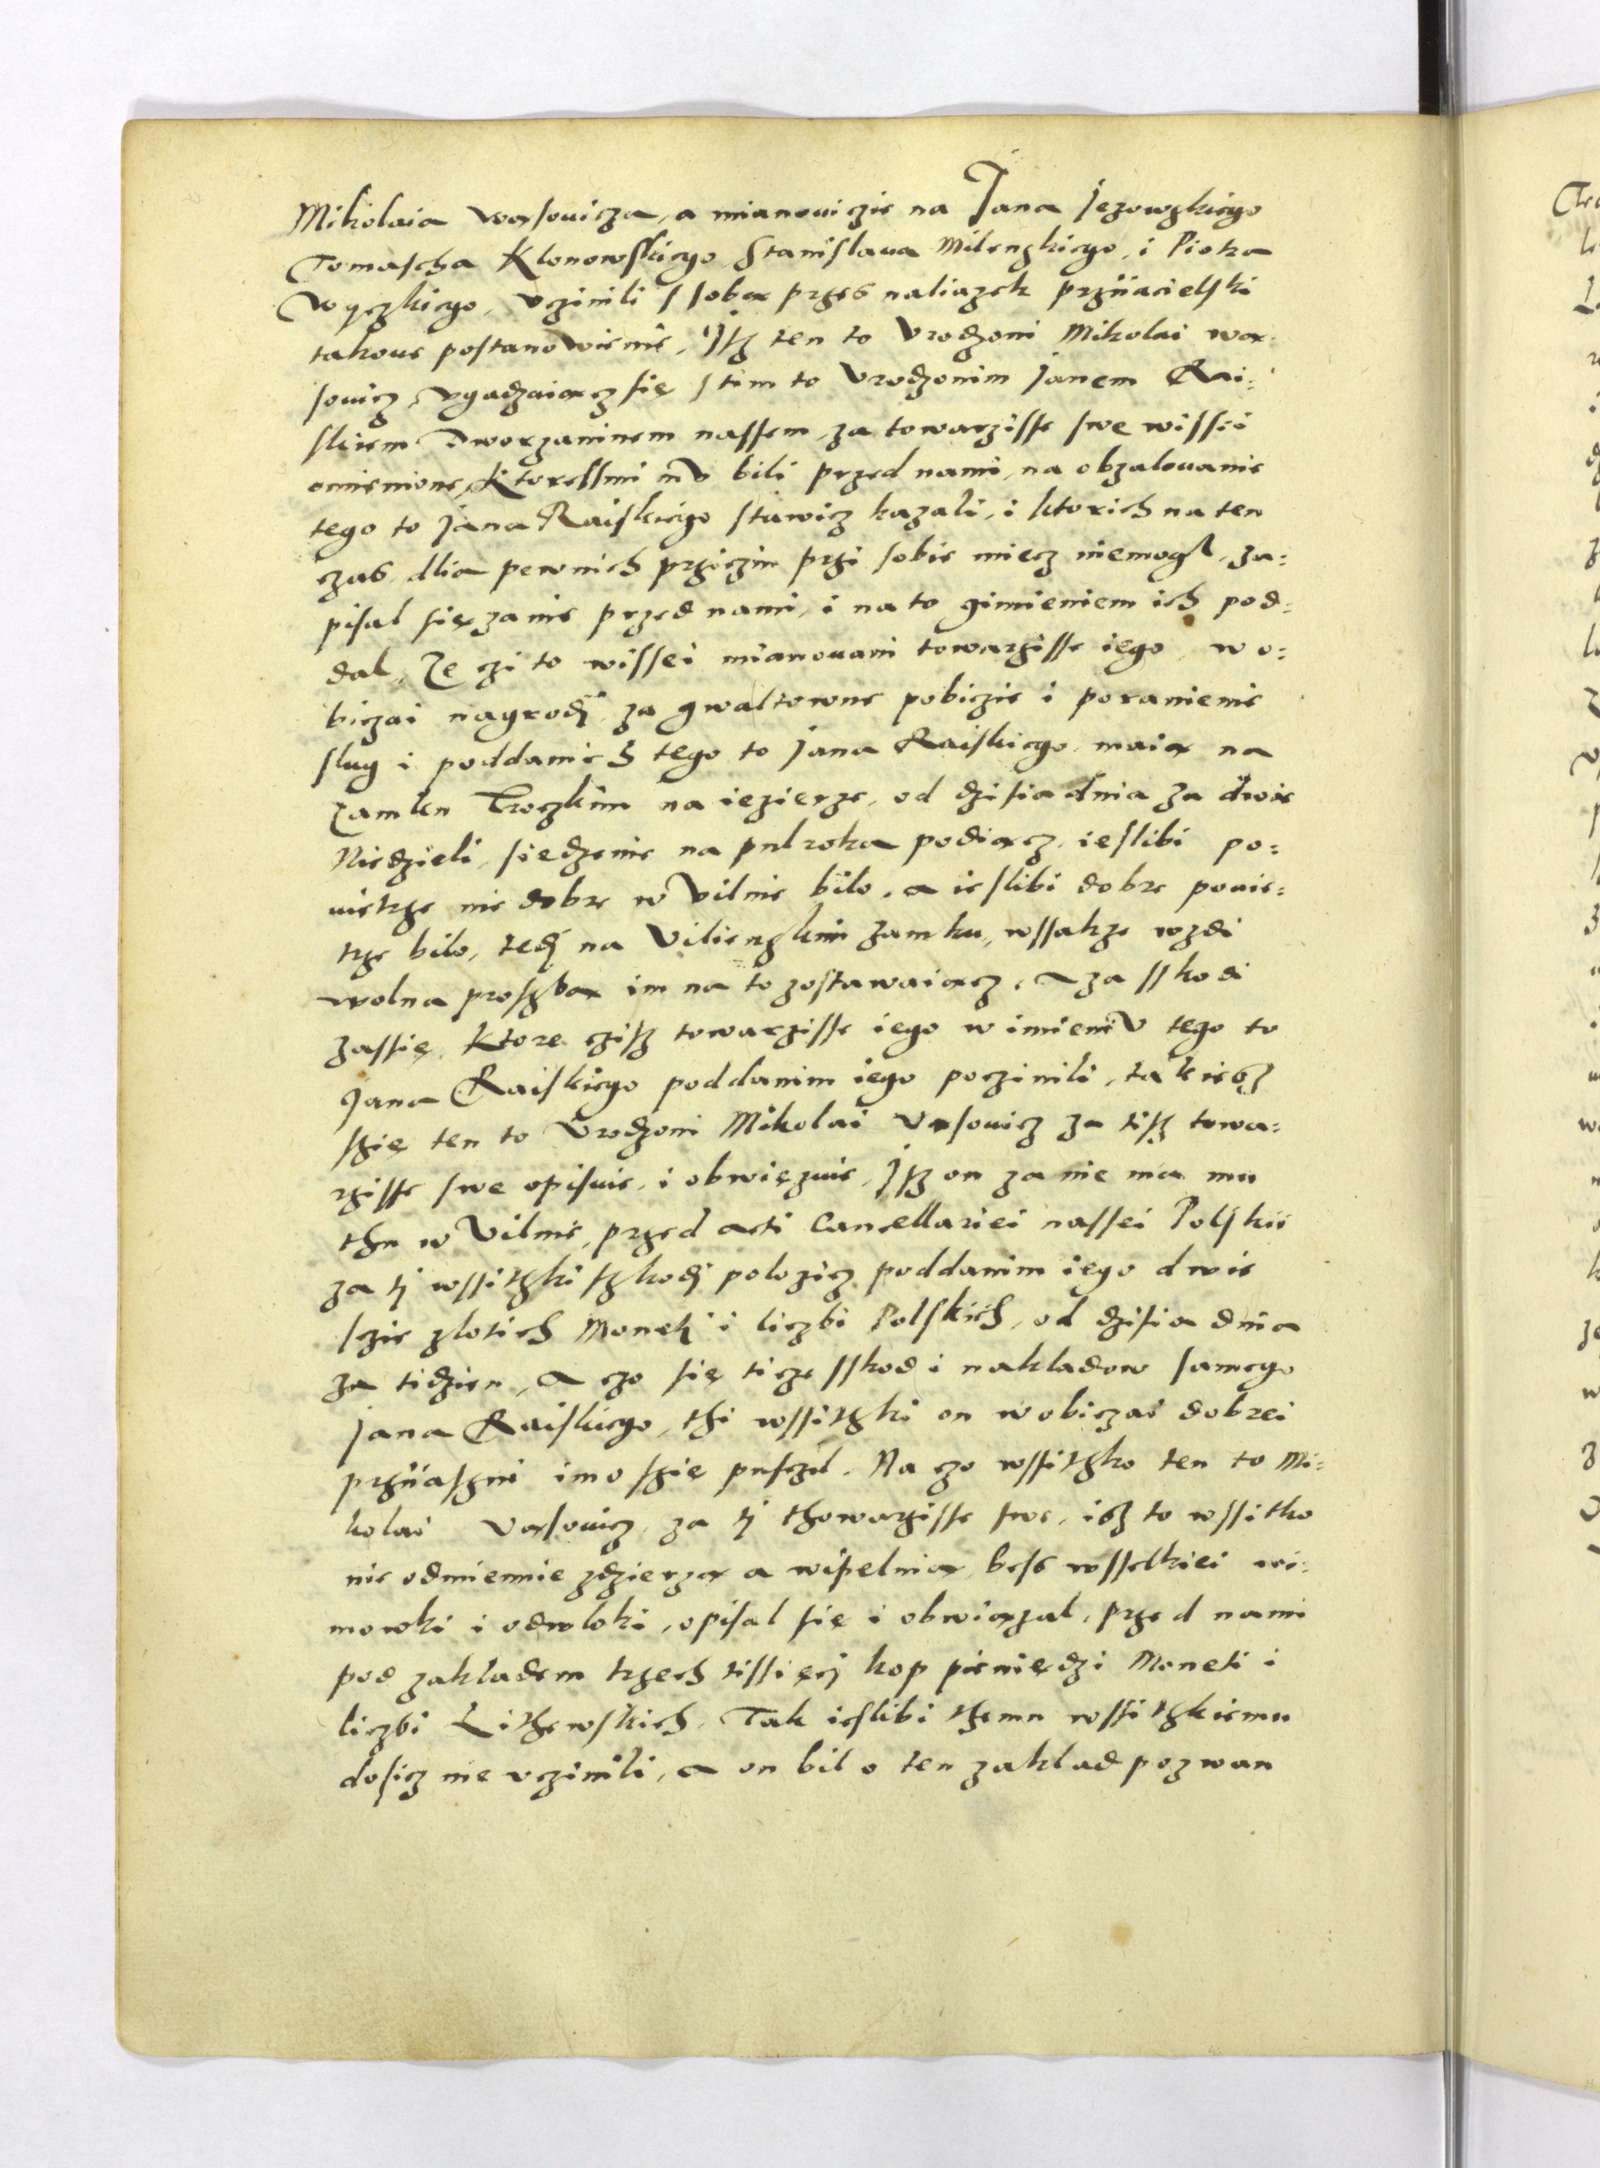 Mikolaia Wąsovicza, a mianoviczie na Jana Jezowskiego
Tomascha Klonowskiego Stanislava Milenskiego, i Piotra
Wyczkiego, vczinili s sobą przes naliazek prziiacielski
takove postanowienie, Jsz ten to Vrodzoni Mikolai Wą-
sovicz, vgadzaiącz się s tim to Vrodzonim Janem Rai:
skiem Dworzaninem nassem, za towarzisse swe wissei
omienione, ktoressmi mv bili przed nami, na obzalovanie
tego to Jana Raiskiego stawicz kazali, i ktorich na ten
czas dlia pewnich prziczin przi sobie miecz niemogl, za:
pisal się zanie przed nami, i na to gimieniem ich pod:
dal, Ze czi to wissei mianovani towarzisse iego, w o:
biczai nagrodj, za gwaltowne pobiczie i poranienie
slug i poddanich tego to Jana Raiskiego maią na
Zamku Troczkim na iezierze, od dzisia dnia za dwie
Niedzieli, siedzenie na pulroka podiącz, ieslibi po:
vietrze nie dobre w Vilnie bilo, a ieslibi dobre povie:
trze bilo, tedj na Vilienskim zamku, wssakze wzdi
wolna proszbą im na to zostawaiącz, a za sskodi
zassię, ktore czisz towarzisse iego w imieniv tego to
Jana Raiskiego poddanim iego poczinili, takiesz
szię ten to Vrodzoni Mikolai Vąsovicz za tisz towa:
rzisse swe opisuie, i obwięzuie, Jsz on za nie ma mu
thu w Vilnie, przed acti Cancellariei nassei Polskii
za tj wssitzki szkodj polozicz poddanim iego dwie
sczie zlotich Monetj i liczbi Polskich, od dzisia dnia
za tidzien, a czo się ticze sskod i nakladow samego
Jana Raiskiego, thi wssitzki on w obiczai dobrei
prziiaszni imo szię pusczil. Na czo wssitzko ten to Mi:
kolai Vąsovicz, za tj thowarzisse swe, isz to wssitko
nie odmiennie zdzierzą a wipelnią, bess wsselkiei wi:
mowki i odwloki, opisal się i obwiązal, przed nami
pod zakladem trzech tissięcj kop pieniędzi Moneti i
liczbi Lithewskich. Tak ieslibi themu wssitzkiemu
dosicz nie vczinili, a on bil o ten zaklad pozwan